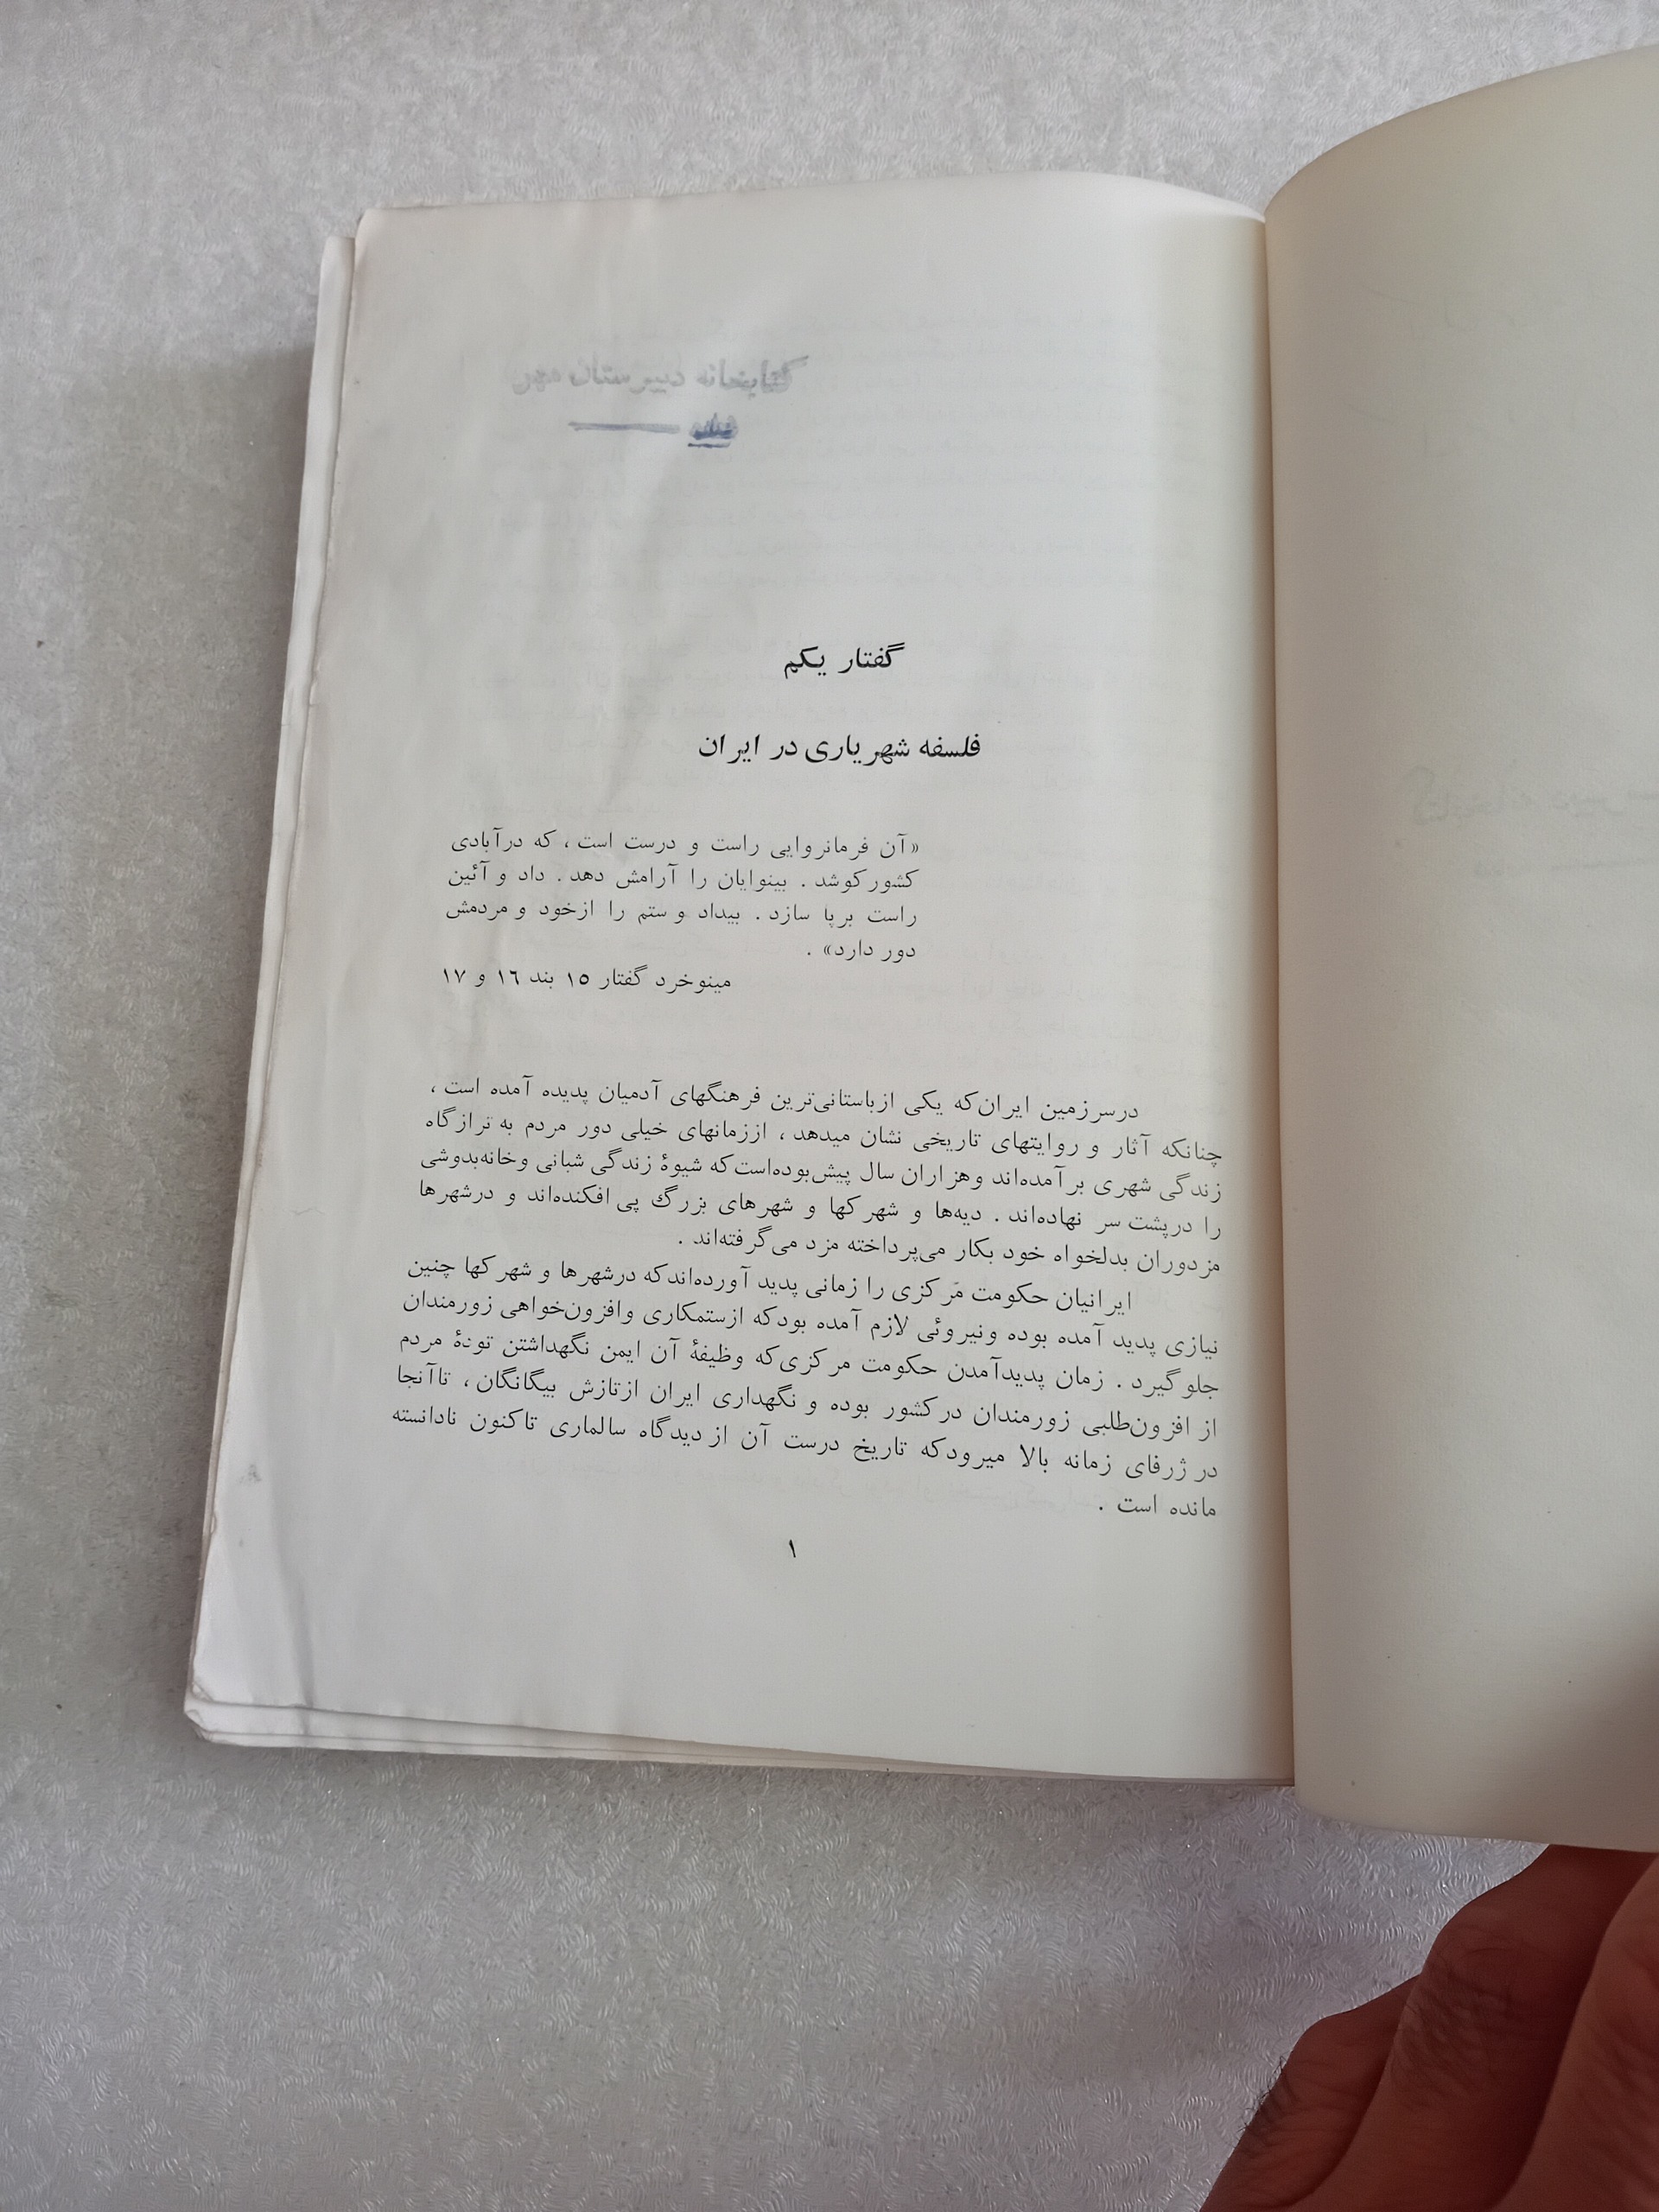 گفتار یکم
فلسفه شهریاری در ایران
«آن فرمانروایی راست و درست است، که درآبادی
کشورکوشد . بینوایان را آرامش دهد . داد و آئین
راست برپا سازد . بیداد و ستم را ازخود و مردمش
دور دارد» .
مینوخرد گفتار ۱۵ بند ۱٦ و ۱۷
درسرزمین ایران‌که یکی ازباستانی‌ترین فرهنگهای آدمیان پدیده آمده است ،
چنانکه آثار و روایتهای تاریخی نشان میدهد ، اززمانهای خیلی دور مردم به ترازگاه
زندگی شهری برآمده‌اند وهزاران سال پیش‌بوده‌است‌که شیوهٔ زندگی شبانی وخانه‌بدوشی
را درپشت سر نهاده‌اند . دیه‌ها و شهرکها و شهرهای بزرگ پی افکنده‌اند و درشهرها
مزدوران بدلخواه خود بکار می‌پرداخته مزد می‌گرفته‌اند .
ایرانیان حکومت مَرکزی را زمانی پدید آورده‌اندکه درشهرها و شهرکها چنین
نیازی پدید آمده بوده ونیروئی لازم آمده بودکه ازستمکاری وافزون‌خواهی زورمندان
جلوگیرد . زمان پدیدآمدن حکومت مرکزی‌که وظیفهٔ آن ایمن نگهداشتن تودهٔ مردم
از افزون‌طلبی زورمندان درکشور بوده و نگهداری ایران ازتازش بیگانگان ، تاآنجا
در ژرفای زمانه بالا میرودکه تاریخ درست آن ازدیدگاه سالماری تاکنون نادانسته
مانده است .
۱